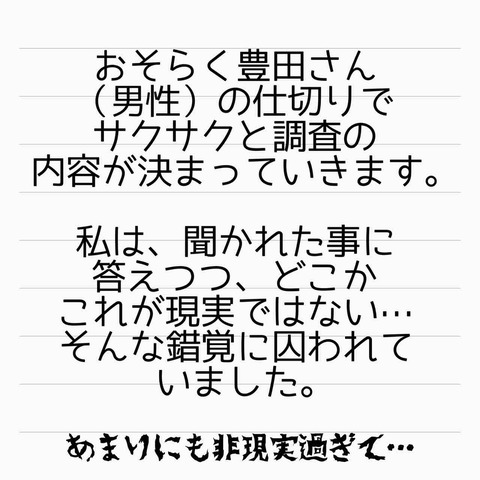 おそらく豊田さん
（男性）の仕切りで
サクサクと調査の
内容が決まっていきます。
私は、聞かれた事に
答えつつ、どこか
これが現実ではない…
そんな錯覚に囚われて
いました。
あまりにも非現実過ぎて…